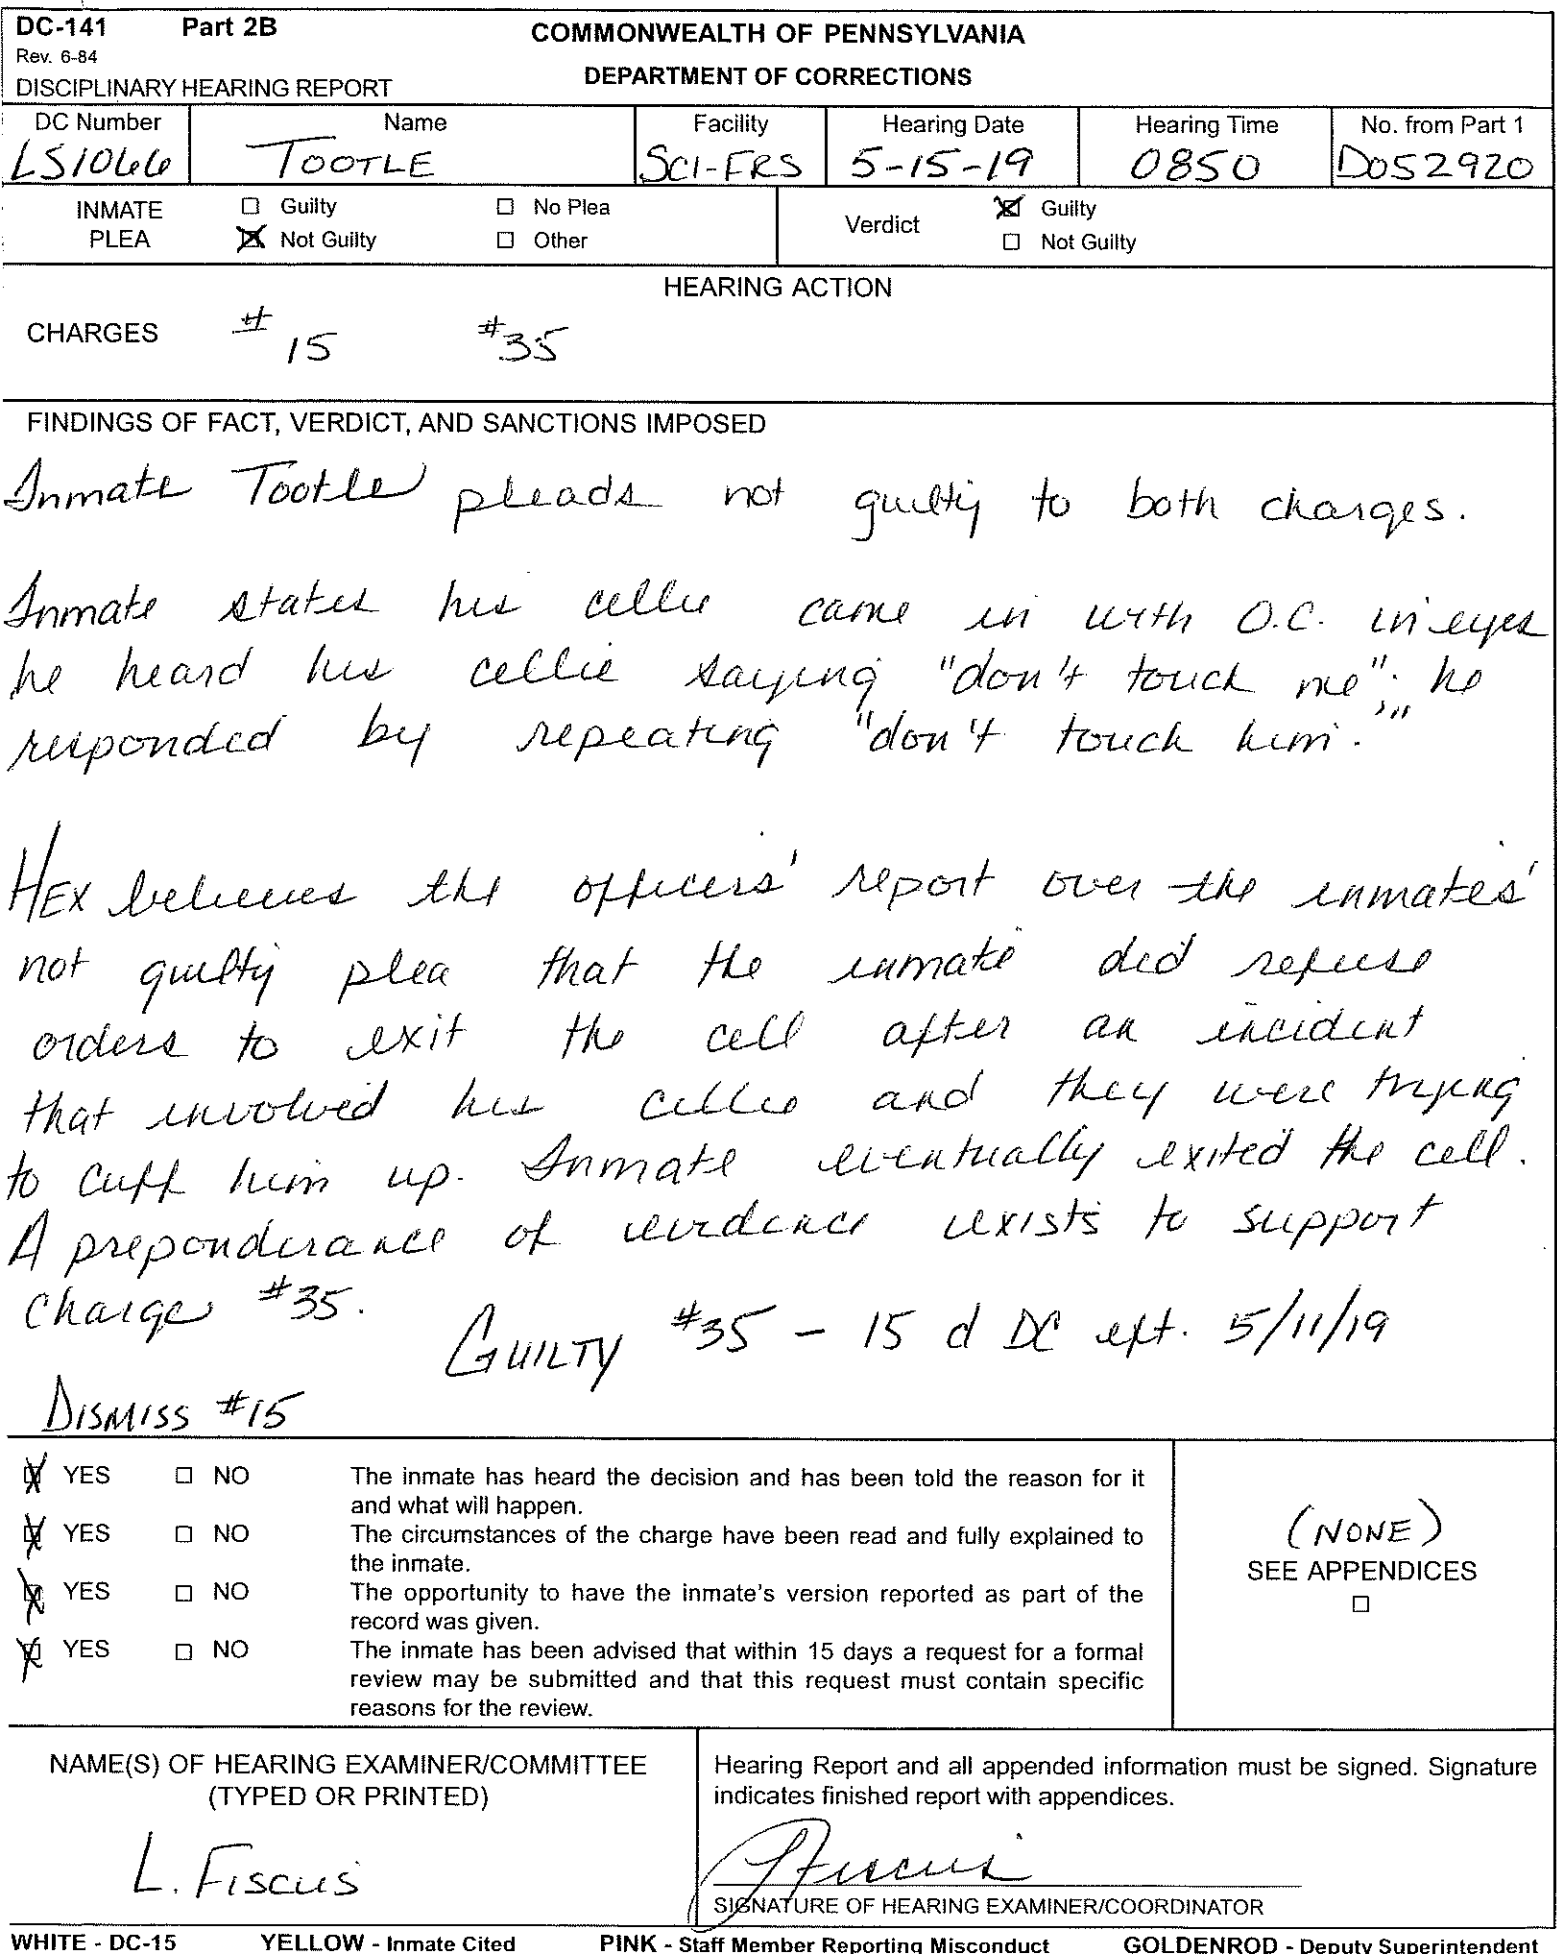 DC-141 Part 2B
Rev. 6-84
DISCIPLINARY HEARING REPORT
COMMONWEALTH OF PENNSYLVANIA
DEPARTMENT OF CORRECTIONS
DC Number Name Facility Hearing Date Hearing Time No. from Part 1
LS1066 TOOTLE SCI-FRS 5-15-19 0850 D052920
INMATE PLEA
☐ Guilty ☐ No Plea
☒ Not Guilty ☐ Other
Verdict
☒ Guilty
☐ Not Guilty
HEARING ACTION
CHARGES #15 #35
FINDINGS OF FACT, VERDICT, AND SANCTIONS IMPOSED
Inmate Tootle pleads not guilty to both charges.
Inmate states his cellie came in with O.C. in eyes
he heard his cellie saying "don't touch me"; he
responded by repeating "don't touch him."
HEX believes the officers' report over the inmates'
not guilty plea that the inmate did refuse
orders to exit the cell after an incident
that involved his cellie and they were trying
to cuff him up. Inmate eventually exited the cell.
A preponderance of evidence exists to support
Charge #35.
GUILTY #35 - 15 d DC eft. 5/11/19
DISMISS #15
☒ YES ☐ NO The inmate has heard the decision and has been told the reason for it
and what will happen.
☒ YES ☐ NO The circumstances of the charge have been read and fully explained to
the inmate.
☒ YES ☐ NO The opportunity to have the inmate's version reported as part of the
record was given.
☒ YES ☐ NO The inmate has been advised that within 15 days a request for a formal
review may be submitted and that this request must contain specific
reasons for the review.
(NONE)
SEE APPENDICES
☐
NAME(S) OF HEARING EXAMINER/COMMITTEE
(TYPED OR PRINTED)
L. Fiscus
Hearing Report and all appended information must be signed. Signature
indicates finished report with appendices.
LFiscus
SIGNATURE OF HEARING EXAMINER/COORDINATOR
WHITE - DC-15 YELLOW - Inmate Cited PINK - Staff Member Reporting Misconduct GOLDENROD - Deputy Superintendent